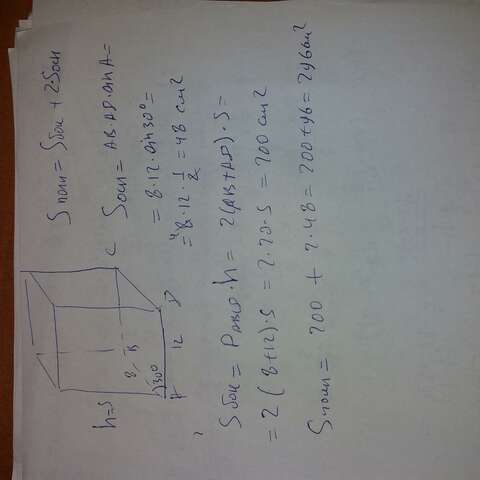 Sполн = Sбок + 2·Sосн
Sосн = AB·AD·sin A =
= 8·12·sin 30° =
= 8·12·1/2 = 48 см²
4
C
B
8
D
12
30°
A
h=5
Sбок = PABCD·h = 2(AB+AD)·5 =
= 2(8+12)·5 = 2·20·5 = 200 см²
Sполн = 200 + 2·48 = 200+96 = 296 см²